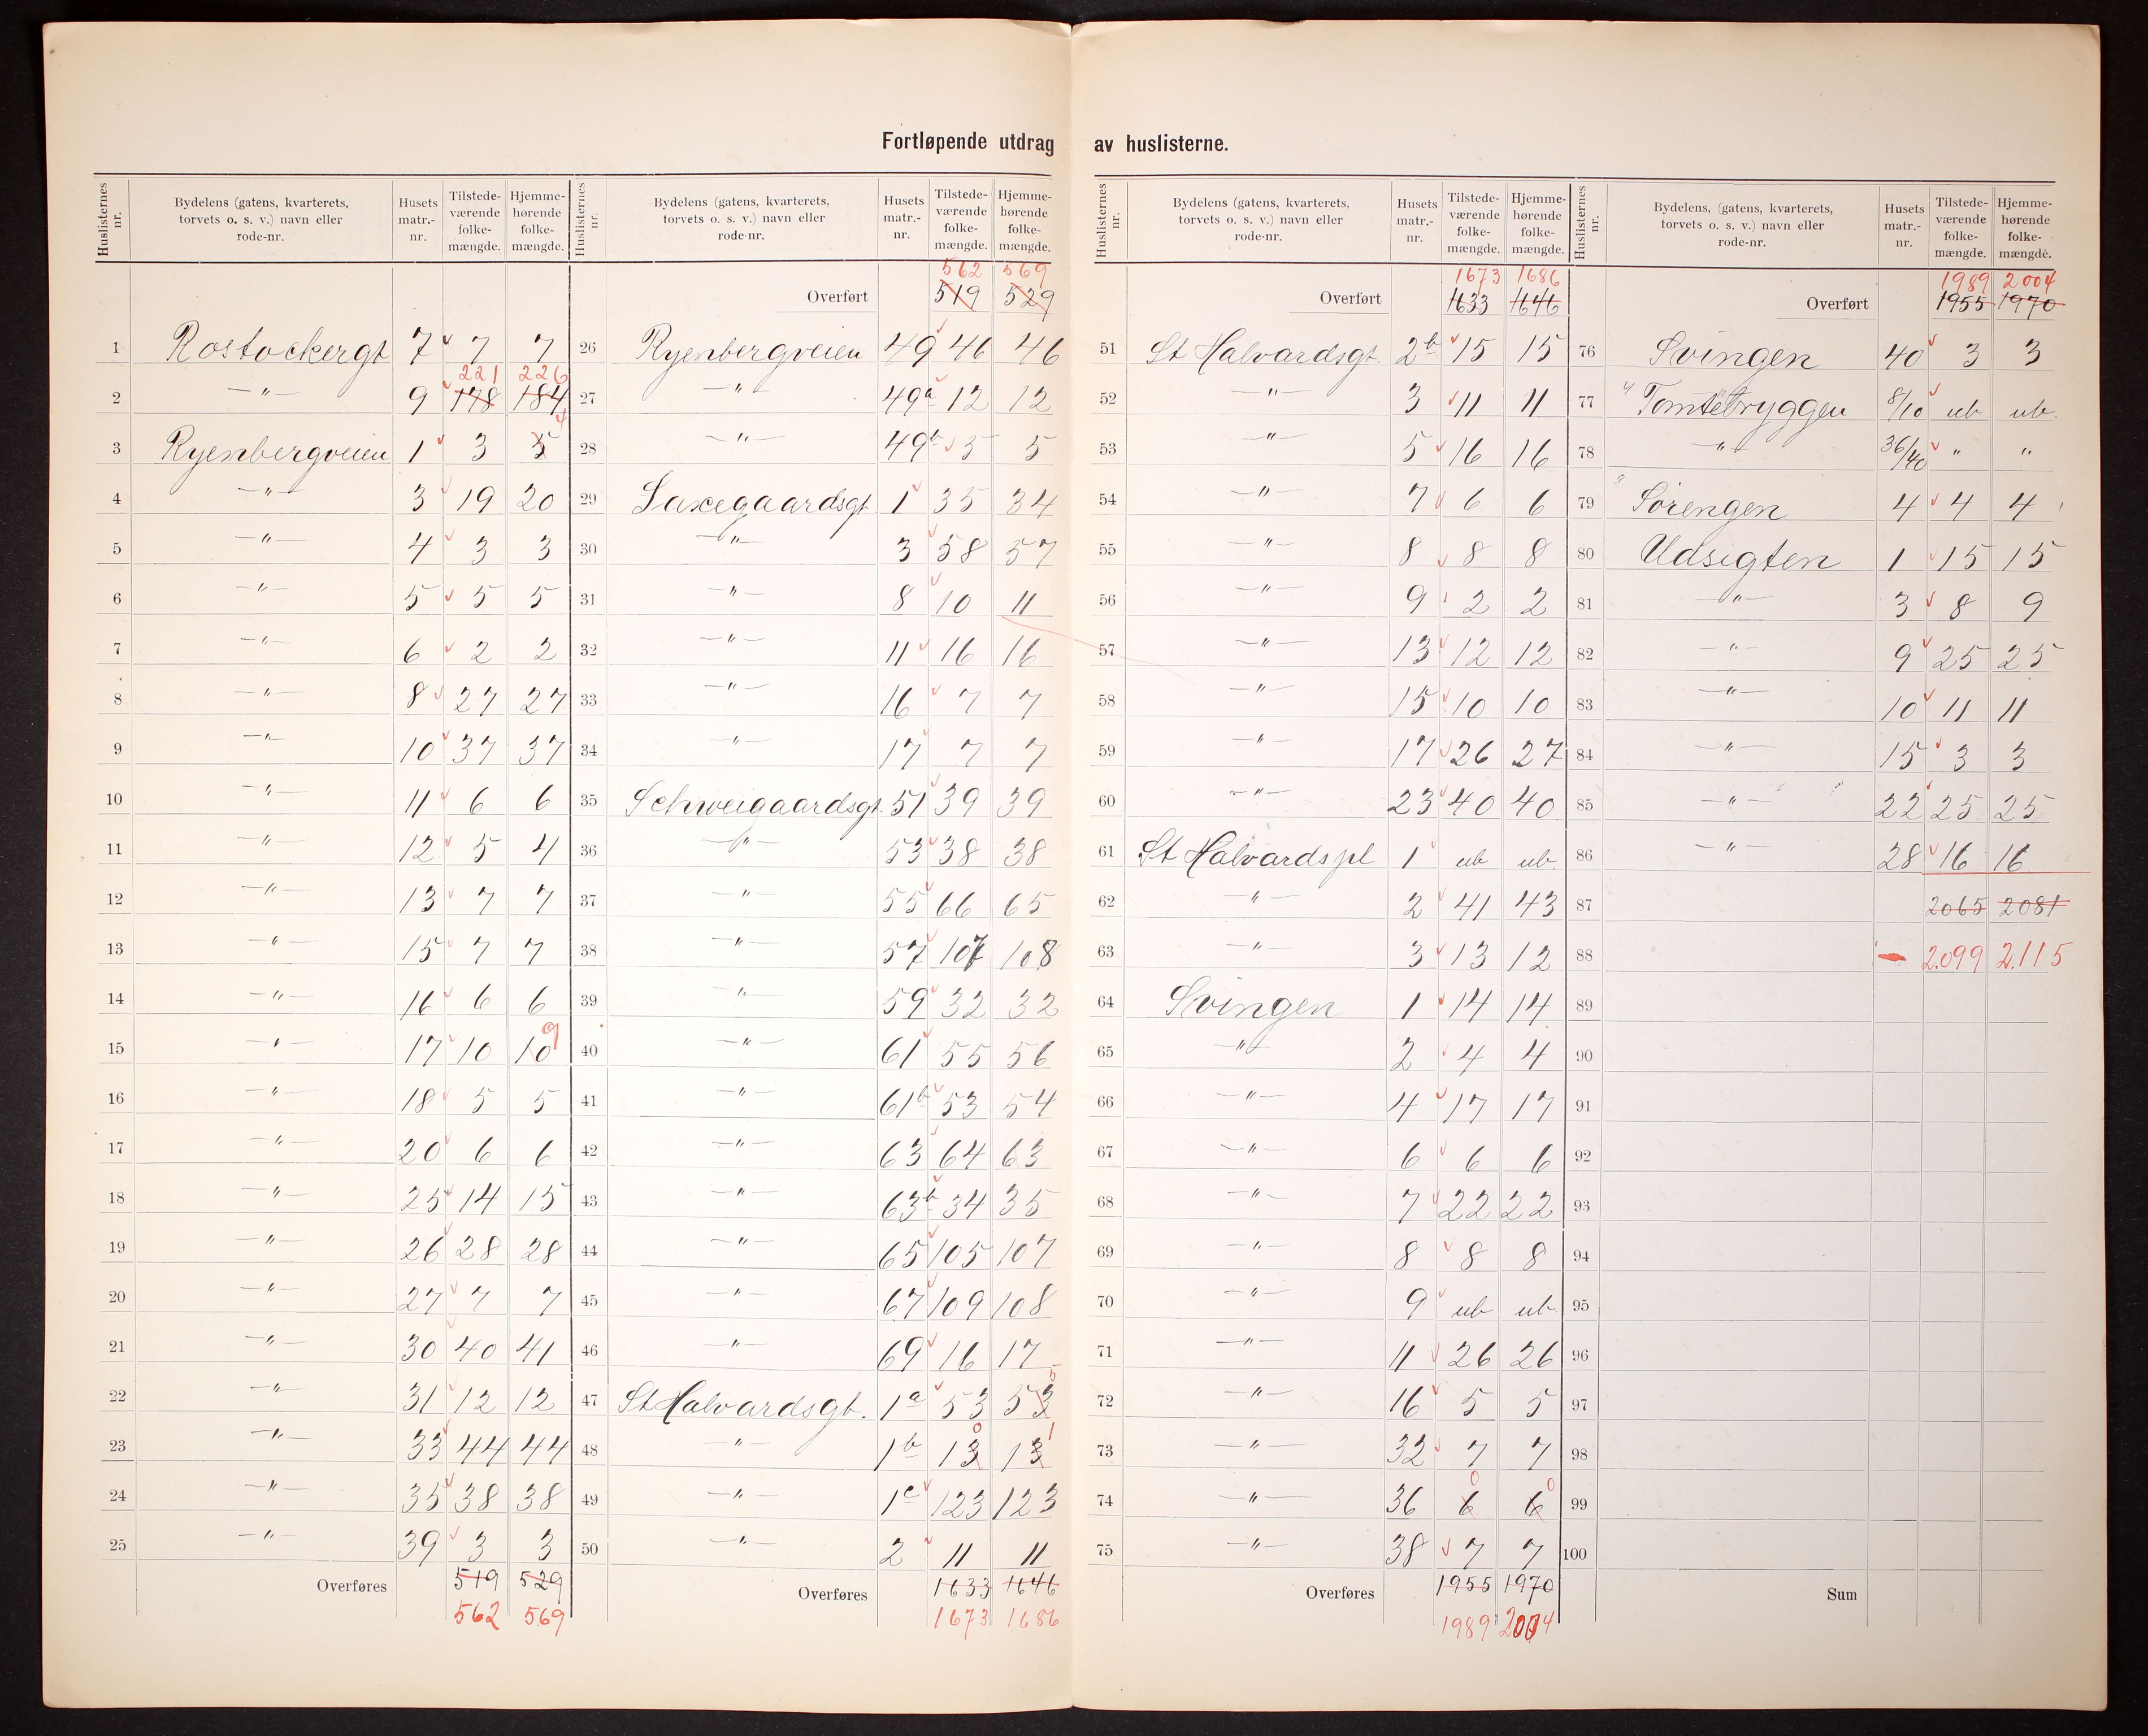 Fortløpende utdrag av huslisterne.
Huslisternes nr. | Bydelens (gatens, kvarterets, torvets o. s. v.) navn eller rode-nr. | Husets matr.-nr. | Tilstede-værende folke-mængde. | Hjemme-hørende folke-mængde.
1 Rostockergt 7 7 7
221 226
2 —"— 9 178 184
3 Ryenbergveien 1 3 5 4
4 —"— 3 19 20
5 —"— 4 3 3
6 —"— 5 5 5
7 —"— 6 2 2
8 —"— 8 27 27
9 —"— 10 37 37
10 —"— 11 6 6
11 —"— 12 5 4
12 —"— 13 7 7
13 —"— 15 7 7
14 —"— 16 6 6
15 —"— 17 10 10 9
16 —"— 18 5 5
17 —"— 20 6 6
18 —"— 25 14 15
19 —"— 26 28 28
20 —"— 27 7 7
21 —"— 30 40 41
22 —"— 31 12 12
23 —"— 33 44 44
24 —"— 35 38 38
25 —"— 39 3 3
Overføres 519 529
562 569
Huslisternes nr. | Bydelens (gatens, kvarterets, torvets o. s. v.) navn eller rode-nr. | Husets matr.-nr. | Tilstede-værende folke-mængde. | Hjemme-hørende folke-mængde.
562 569
Overført 519 529
26 Ryenbergveien 49 46 46
27 —"— 49a 12 12
28 —"— 49b 5 5
29 Saxegaardsgt 1 35 34
30 —"— 3 58 57
31 —"— 8 10 11
32 —"— 11 16 16
33 —"— 16 7 7
34 —"— 17 7 7
35 Schweigaardsgt. 51 39 39
36 —"— 53 38 38
37 —"— 55 66 65
38 —"— 57 107 108
39 —"— 59 32 32
40 —"— 61 55 56
41 —"— 61b 53 54
42 —"— 63 64 63
43 —"— 63b 34 35
44 —"— 65 105 107
45 —"— 67 109 108
46 —"— 69 16 17
47 St Halvardsgt. 1a 53 53 5
48 —"— 1b 13 0 13 1
49 —"— 1c 123 123
50 —"— 2 11 11
Overføres 1633 1646
1673 1686
Huslisternes nr. | Bydelens (gatens, kvarterets, torvets o. s. v.) navn eller rode-nr. | Husets matr.-nr. | Tilstede-værende folke-mængde. | Hjemme-hørende folke-mængde.
1673 1686
Overført 1633 1646
51 St Halvardsgt. 2b 15 15
52 —"— 3 11 11
53 —"— 5 16 16
54 —"— 7 6 6
55 —"— 8 8 8
56 —"— 9 2 2
57 —"— 13 12 12
58 —"— 15 10 10
59 —"— 17 26 27
60 —"— 23 40 40
61 St Halvardspl 1 ub ub.
62 —"— 2 41 43
63 —"— 3 13 12
64 Svingen 1 14 14
65 —"— 2 4 4
66 —"— 4 17 17
67 —"— 6 6 6
68 —"— 7 22 22
69 —"— 8 8 8
70 —"— 9 ub ub.
71 —"— 11 26 26
72 —"— 16 5 5
73 —"— 32 7 7
74 —"— 36 6 0 6 0
75 —"— 38 7 7
Overføres 1955 1970
1989 2004
Huslisternes nr. | Bydelens, (gatens, kvarterets, torvets o. s. v.) navn eller rode-nr. | Husets matr.-nr. | Tilstede-værende folke-mængde. | Hjemme-hørende folke-mængde.
1989 2004
Overført 1955 1970
76 Svingen 40 3 3
77 Tomtebryggen 8/10 ub ub.
78 —"— 36/40 " "
79 Sørengen 4 4 4
80 Udsigten 1 15 15
81 —"— 3 8 9
82 —"— 9 25 25
83 —"— 10 11 11
84 —"— 15 3 3
85 —"— 22 25 25
86 —"— 28 16 16
87 2065 2081
88 2.099 2.115
89
90
91
92
93
94
95
96
97
98
99
100
Sum